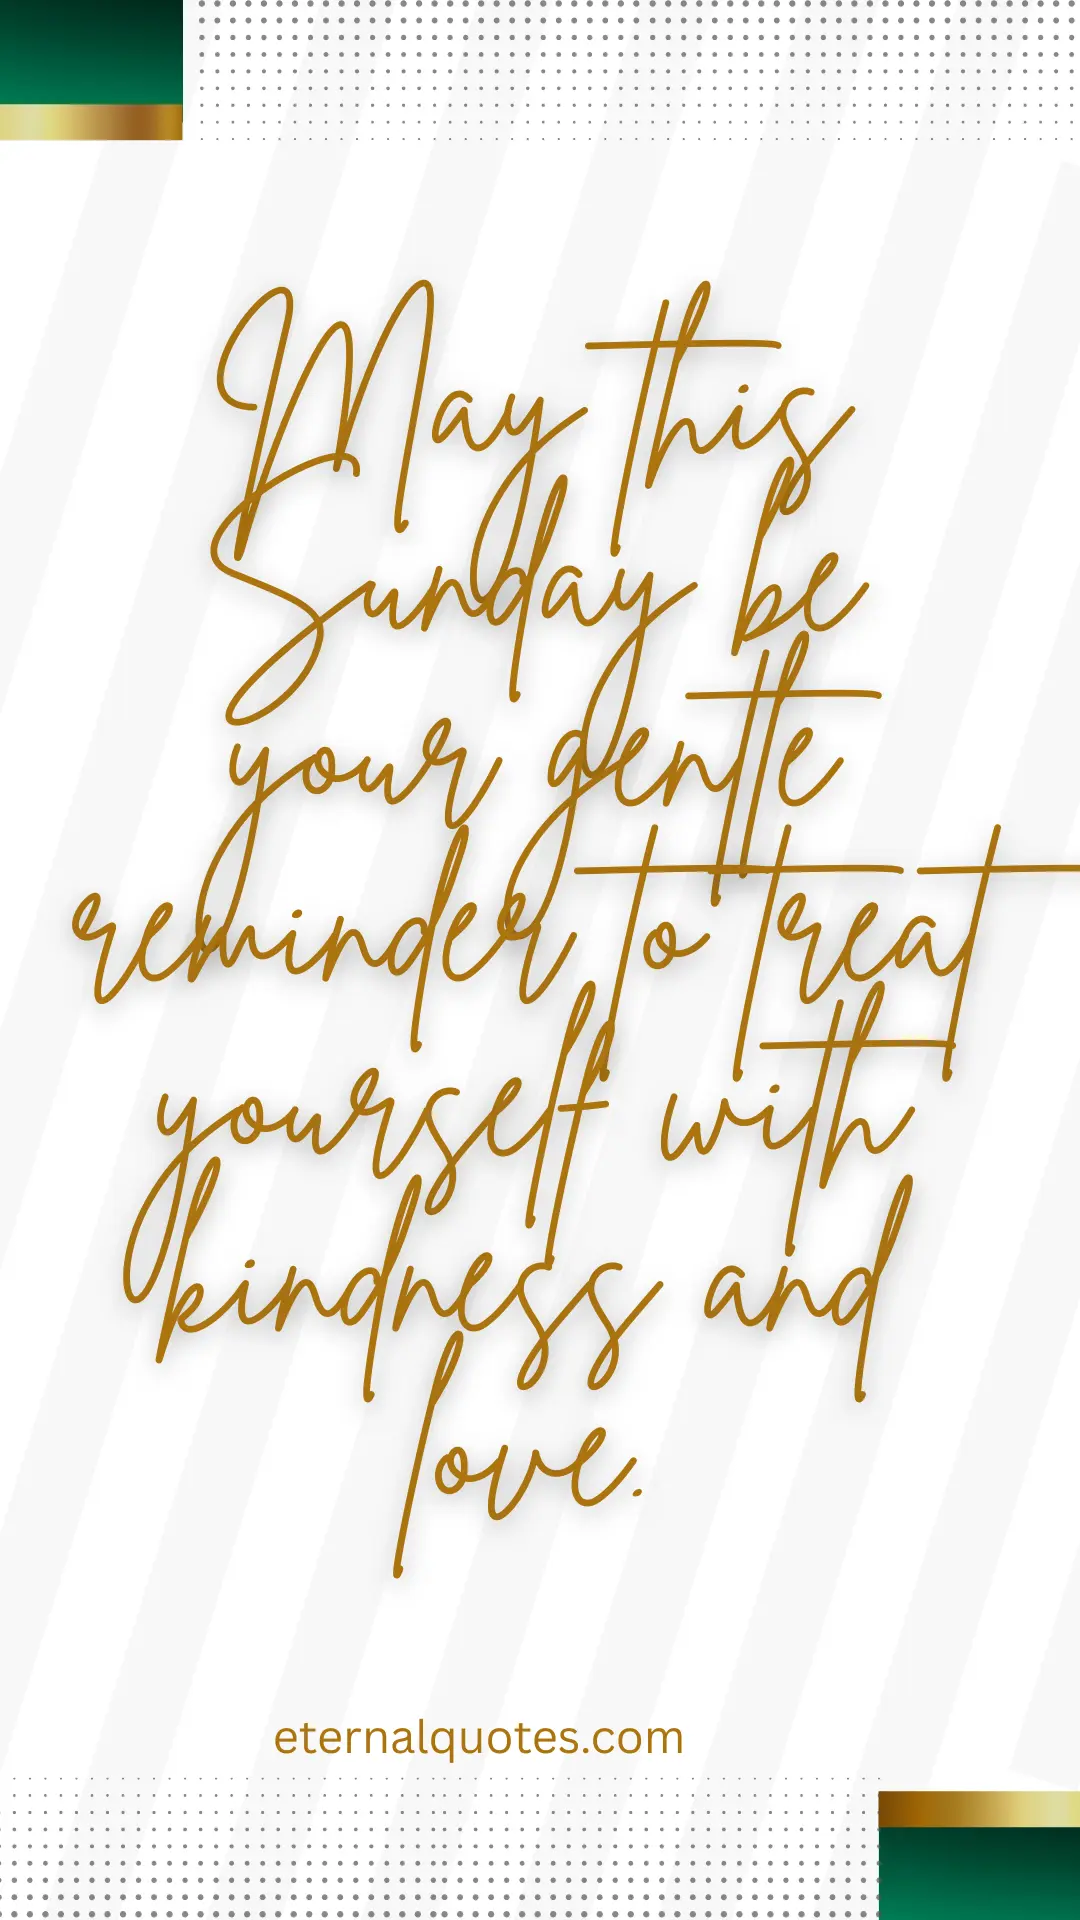 May this
Sunday be
your gentle
reminder to treat
yourself with
kindness and
love.
eternalquotes.com